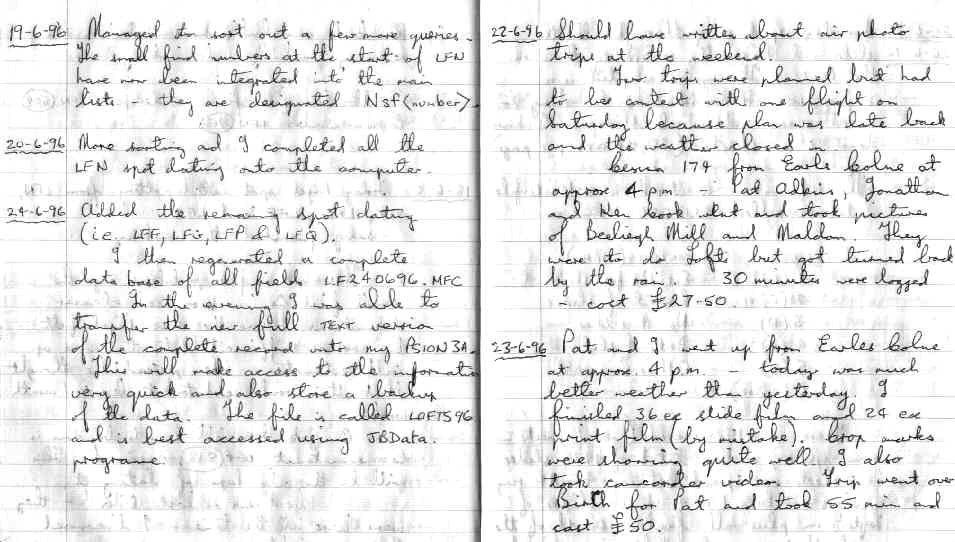 19-6-96 Managed to sort out a few more queries.
The small find numbers at the start of LFN
have now been integrated into the main
lists - they are designated Nsf<number>.
20-6-96 More sorting ad I completed all the
LFN spot dating onto the computer.
24-6-96 Added the remaing spot dating
(i.e. LFF, LFG, LFP & LFQ).
I then regenerated a complete
data base of all fields LF240696.MFC
In the evening I was able to
transfer the new full TEXT version
of the complete record onto my PSION 3A.
This will make access to the information
very quick and also store a backup
of the data. The file is called LOFTS96
and is best accessed using JBData.
programe.
22-6-96 Should have written about air photo
trips at the weekend.
Two trips were planned but had
to be content with one flight on
Saturday because plan was late back
and the weather closed in.
174 from Earls Colne at
approx 4 pm - Pat Adkins, Jonathan
and Ken Cook went and took pictures
of Beeliegh Mill and Maldon. They
were to do Lofts but got turned back
by the rain. 30 minutes were logged
- cost £27-50.
23-6-96 Pat and I went up from Earles Colne
at approx. 4 p.m. - today was much
better weather than yesterday. I
finished 36 ex slide film and 24 ex
print film (by mistake). Crop marks
were showing quite well. I also
took camcorder video. Trip went over
Birch for Pat and took 55 min and
cost £50.